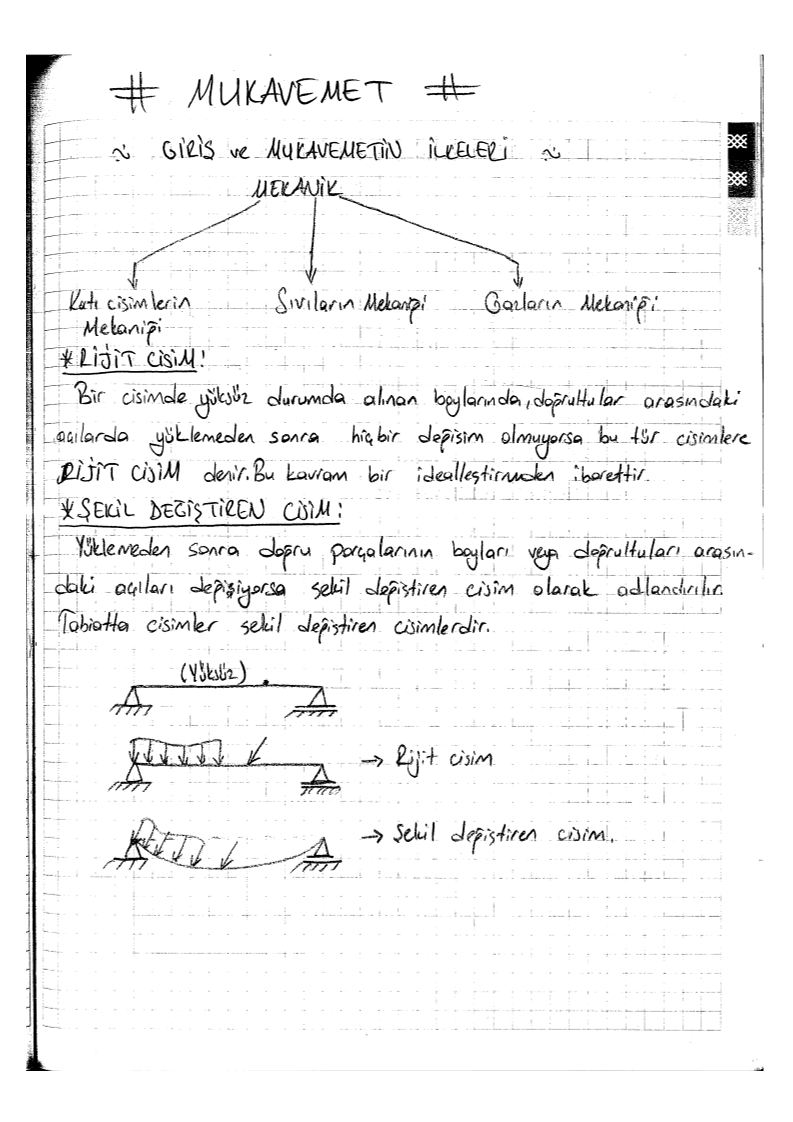 # MUKAVEMET #
~ GİRİŞ ve MUKAVEMETİN İLKELERİ ~
MEKANİK
Katı cisimlerin Sıvıların Mekaniği Gazların Mekaniği
Mekaniği
* RİJİT CİSİM:
Bir cisimde yüksüz durumda alınan boylarında, doğrultular arasındaki
açılarda yüklemeden sonra hiçbir değişim olmuyorsa bu tür cisimlere
RİJİT CİSİM denir. Bu kavram bir idealleştirmeden ibarettir.
* ŞEKİL DEĞİŞTİREN CİSİM:
Yüklemeden sonra doğru parçalarının boyları veya doğrultuları arasın-
daki açıları değişiyorsa şekil değiştiren cisim olarak adlandırılır.
Tabiatta cisimler şekil değiştiren cisimlerdir.
(Yüksüz)
→ Rijit cisim
→ Şekil değiştiren cisim.